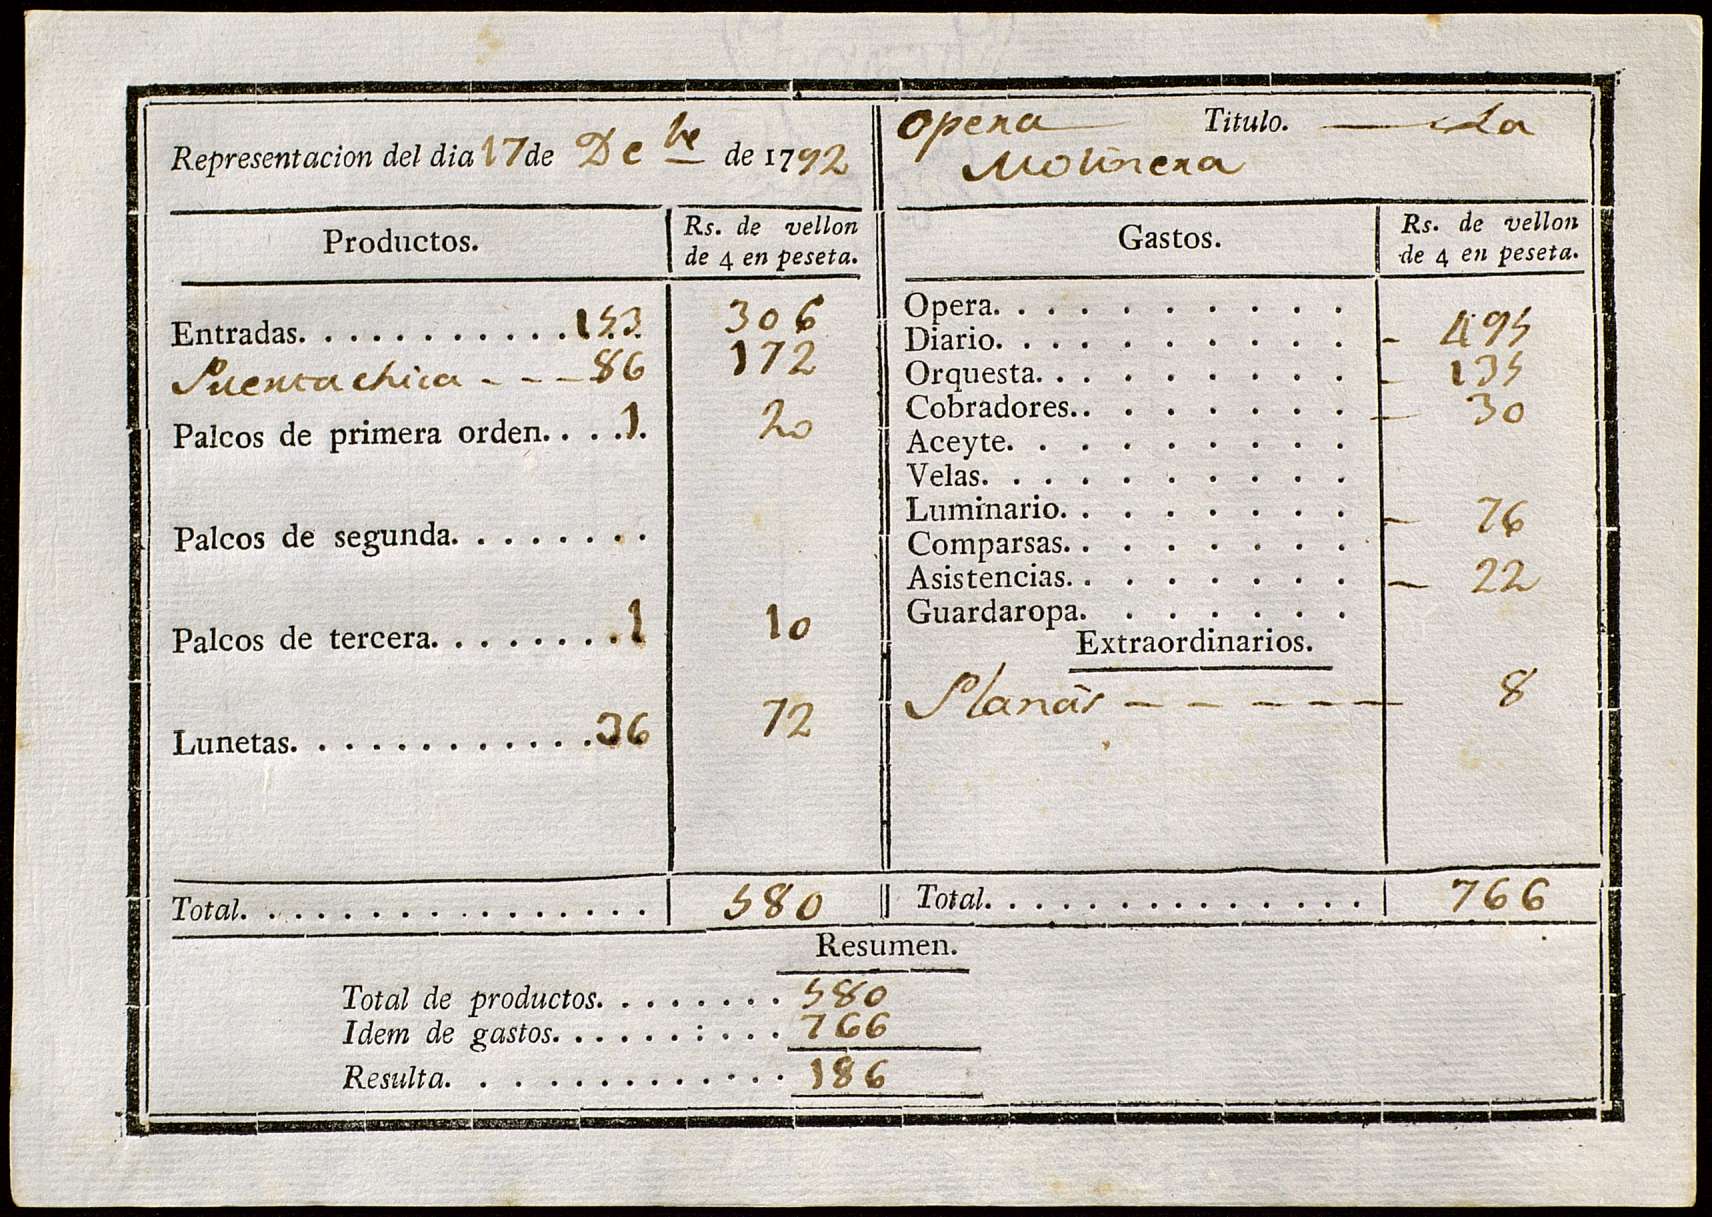 Representacion del dia 17 de De bre de 1792
Opera Titulo. La
Molinera
Productos. Rs. de vellon
de 4 en peseta.
Entradas. . . . . . . . . . . 153 306
Puerta chica - - - 86 172
Palcos de primera orden. . . . 1 20
Palcos de segunda. . . . . . . .
Palcos de tercera. . . . . . . . 1 10
Lunetas. . . . . . . . . . . . 36 72
Total. . . . . . . . . . . . . . . . 580
Gastos. Rs. de vellon
de 4 en peseta.
Opera. . . . . . . . . .
Diario. . . . . . . . . . - 495
Orquesta. . . . . . . . . - 135
Cobradores. . . . . . . . - 30
Aceyte. . . . . . . . . .
Velas. . . . . . . . . .
Luminario. . . . . . . . - 76
Comparsas. . . . . . . .
Asistencias. . . . . . . . - 22
Guardaropa. . . . . . .
Extraordinarios.
Planas - - - - - - 8
Total. . . . . . . . . . . . . . . 766
Resumen.
Total de productos. . . . . . . . 580
Idem de gastos. . . . . . : . . . 766
Resulta. . . . . . . . . . . . . 186